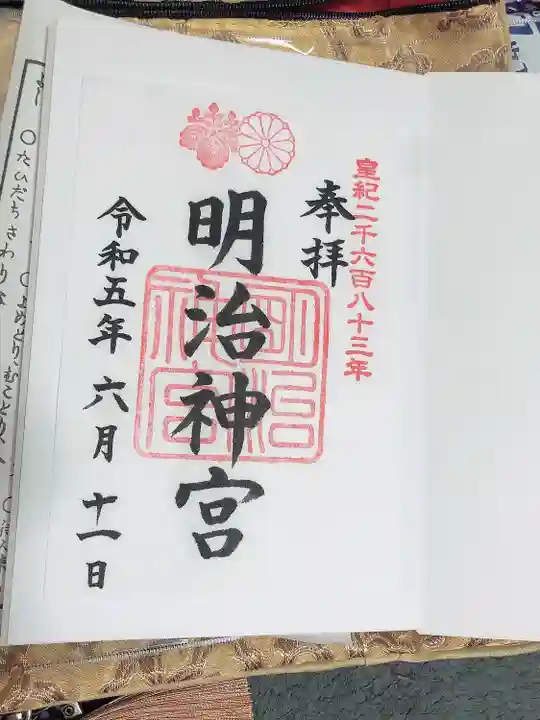 皇紀二千六百八十三年
奉拝
明治神宮
明治
神宮
令和五年六月十一日
○たひだちさわりな
○よめとりむことり